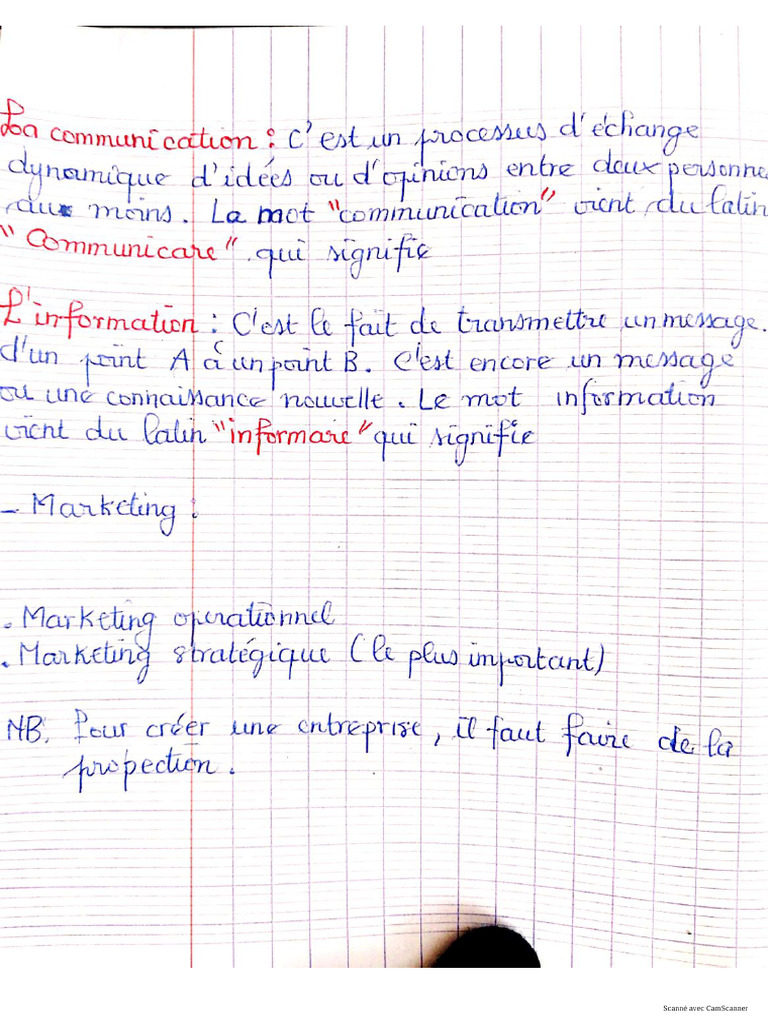 La communication : C'est un processus d'échange
dynamique d'idées ou d'opinions entre deux personne
aux moins. La mot "communication" vient du latin
"Communicare" qui signifie
L'information : C'est le fait de transmettre un message.
d'un point A à un point B. C'est encore un message
ou une connaissance nouvelle. Le mot information
vient du latin "informare" qui signifie
- Marketing :
. Marketing operationnel
. Marketing stratégique (le plus important)
NB. Pour créer une entreprise, il faut faire de la
propection.
Scanné avec CamScanner